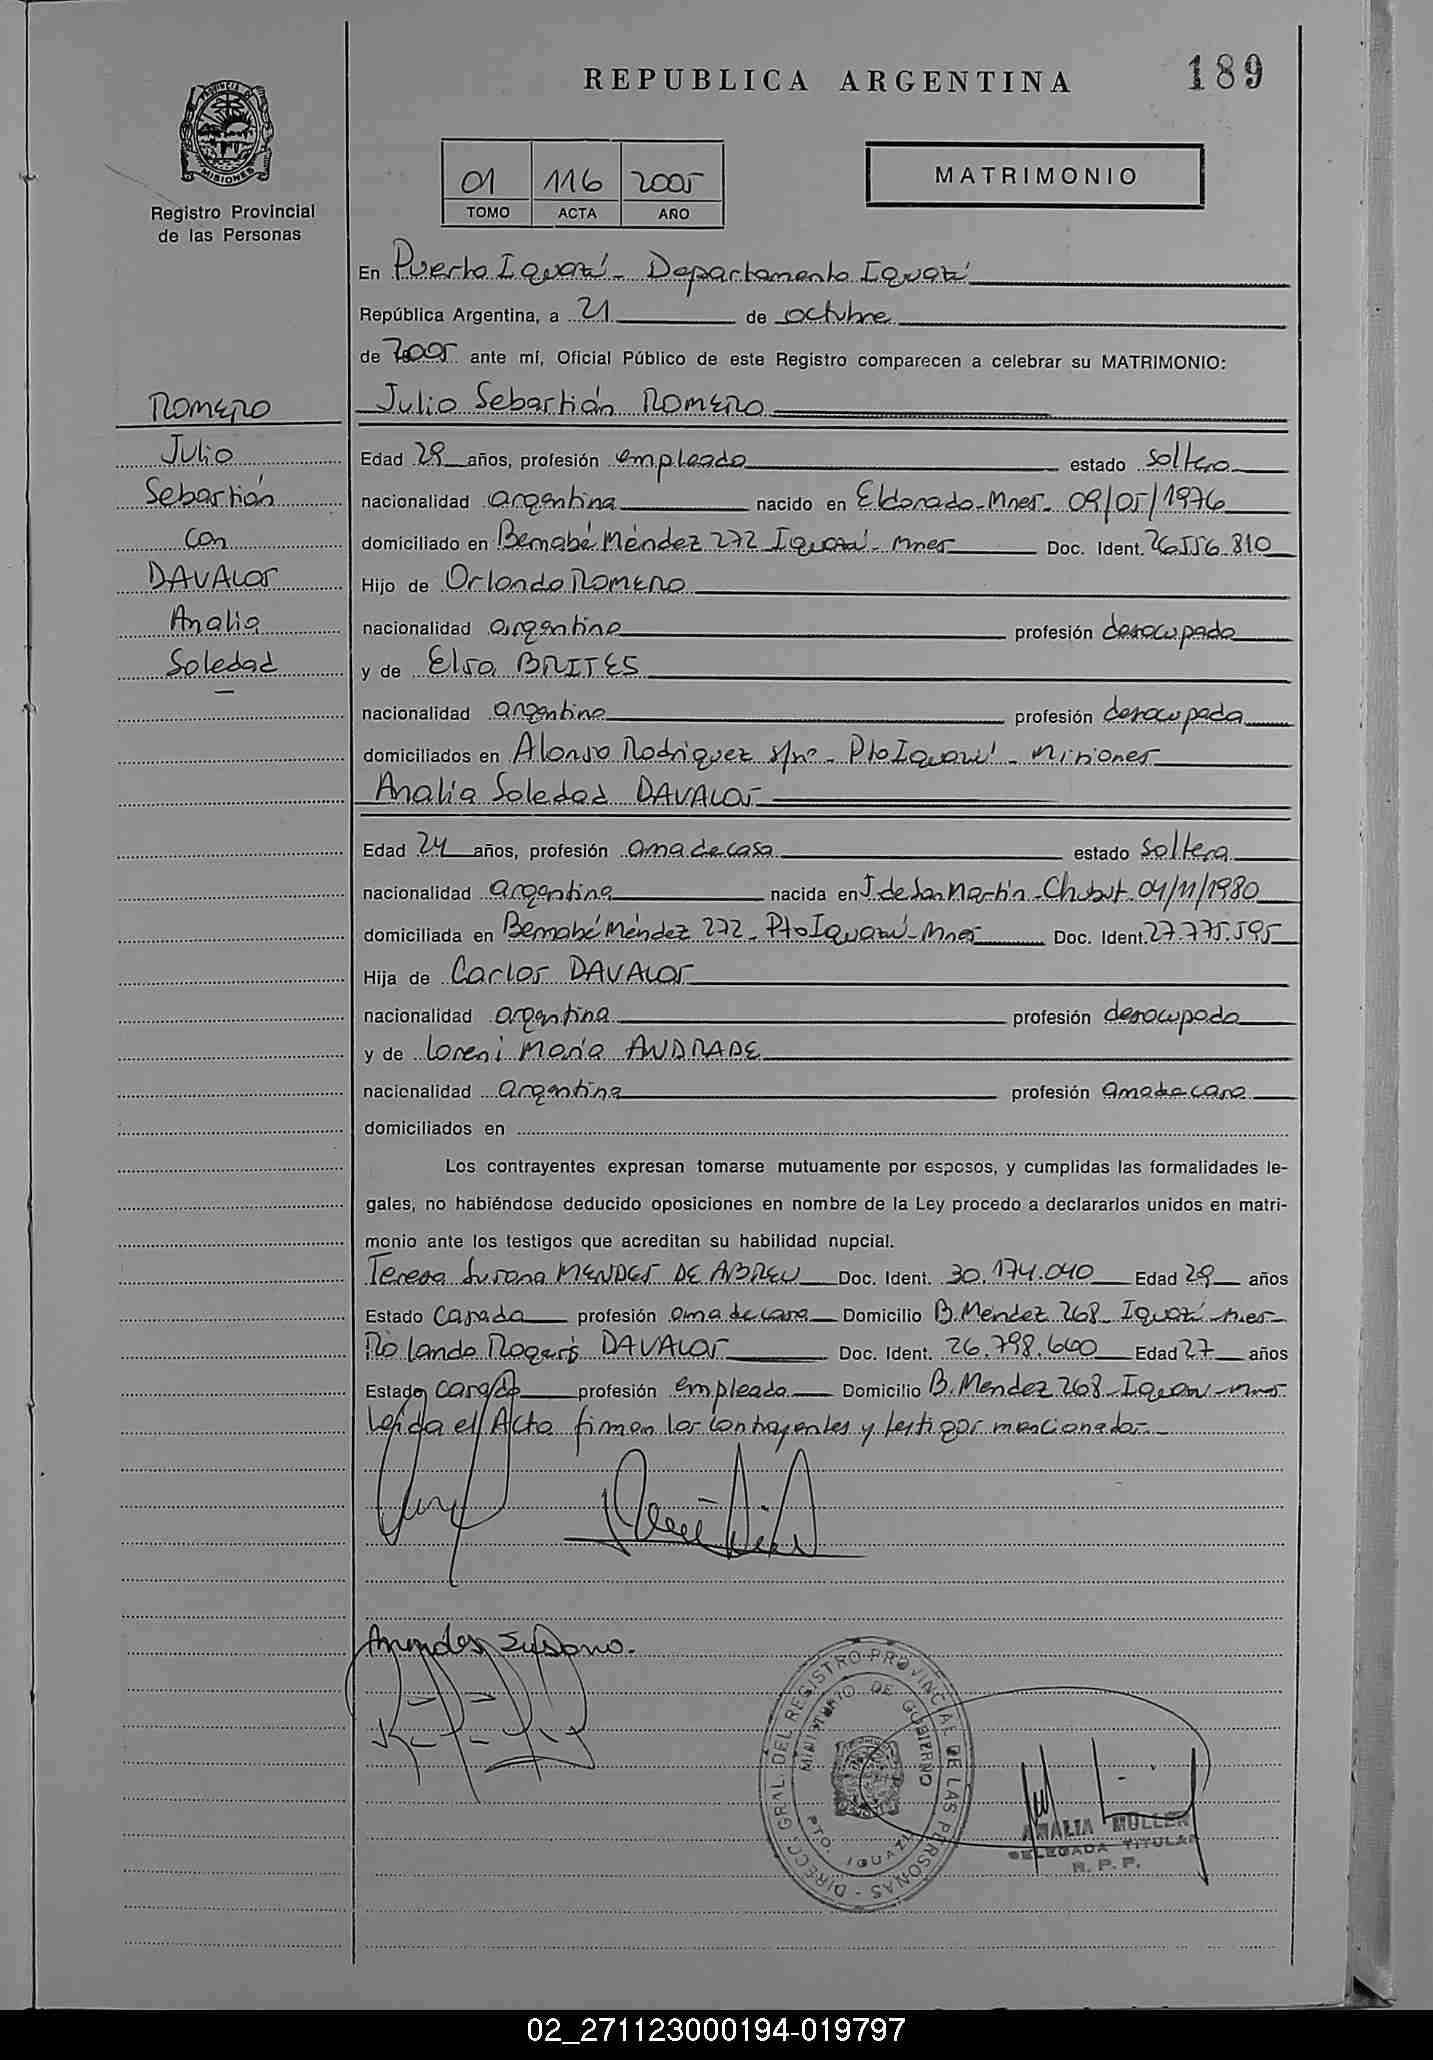 REPUBLICA ARGENTINA
189
PROVINCIA DE
MISIONES
Registro Provincial
de las Personas
01 116 2005
TOMO ACTA AÑO
MATRIMONIO
En Puerto Iguazú - Departamento Iguazú
República Argentina, a 21 de octubre
de 2005 ante mí, Oficial Público de este Registro comparecen a celebrar su MATRIMONIO:
ROMERO
Julio
Sebastián
con
DAVALOS
Analia
Soledad
Julio Sebastián ROMERO
Edad 29 años, profesión empleado estado soltero
nacionalidad argentina nacido en Eldorado-Mnes- 09/05/1976
domiciliado en Bernabé Méndez 272 Iguazú - Mnes Doc. Ident. 26.556.810
Hijo de Orlando ROMERO
nacionalidad argentina profesión desocupado
y de Elsa BRITES
nacionalidad argentina profesión desocupada
domiciliados en Alonso Rodriguez s/nº - Pto Iguazú - Misiones
Analia Soledad DAVALOS
Edad 24 años, profesión ama de casa estado soltera
nacionalidad argentina nacida en J. de San Martín - Chubut - 04/11/1980
domiciliada en Bernabé Méndez 272 - Pto Iguazú - Mnes Doc. Ident. 27.775.595
Hija de Carlos DAVALOS
nacionalidad argentina profesión desocupado
y de Loreni María ANDRADE
nacionalidad argentina profesión ama de casa
domiciliados en
Los contrayentes expresan tomarse mutuamente por esposos, y cumplidas las formalidades le-
gales, no habiéndose deducido oposiciones en nombre de la Ley procedo a declararlos unidos en matri-
monio ante los testigos que acreditan su habilidad nupcial.
Teresa Susana MENDES DE ABREU Doc. Ident. 30.174.040 Edad 29 años
Estado Casada profesión ama de casa Domicilio B. Mendez 268 - Iguazú - Mnes-
Rolando Rogers DAVALOS Doc. Ident. 26.798.600 Edad 27 años
Estado casado profesión empleado Domicilio B. Mendez 268 - Iguazú - Mnes-
Leída el Acta firman los contrayentes y testigos mencionados-
Susana.
DIRECC. GRAL. DEL REGISTRO PROVINCIAL DE LAS PERSONAS
MINISTERIO DE GOBIERNO
PTO. IGUAZU
ANALIA MULLER
DELEGADA TITULAR
R. P. P.
02_271123000194-019797